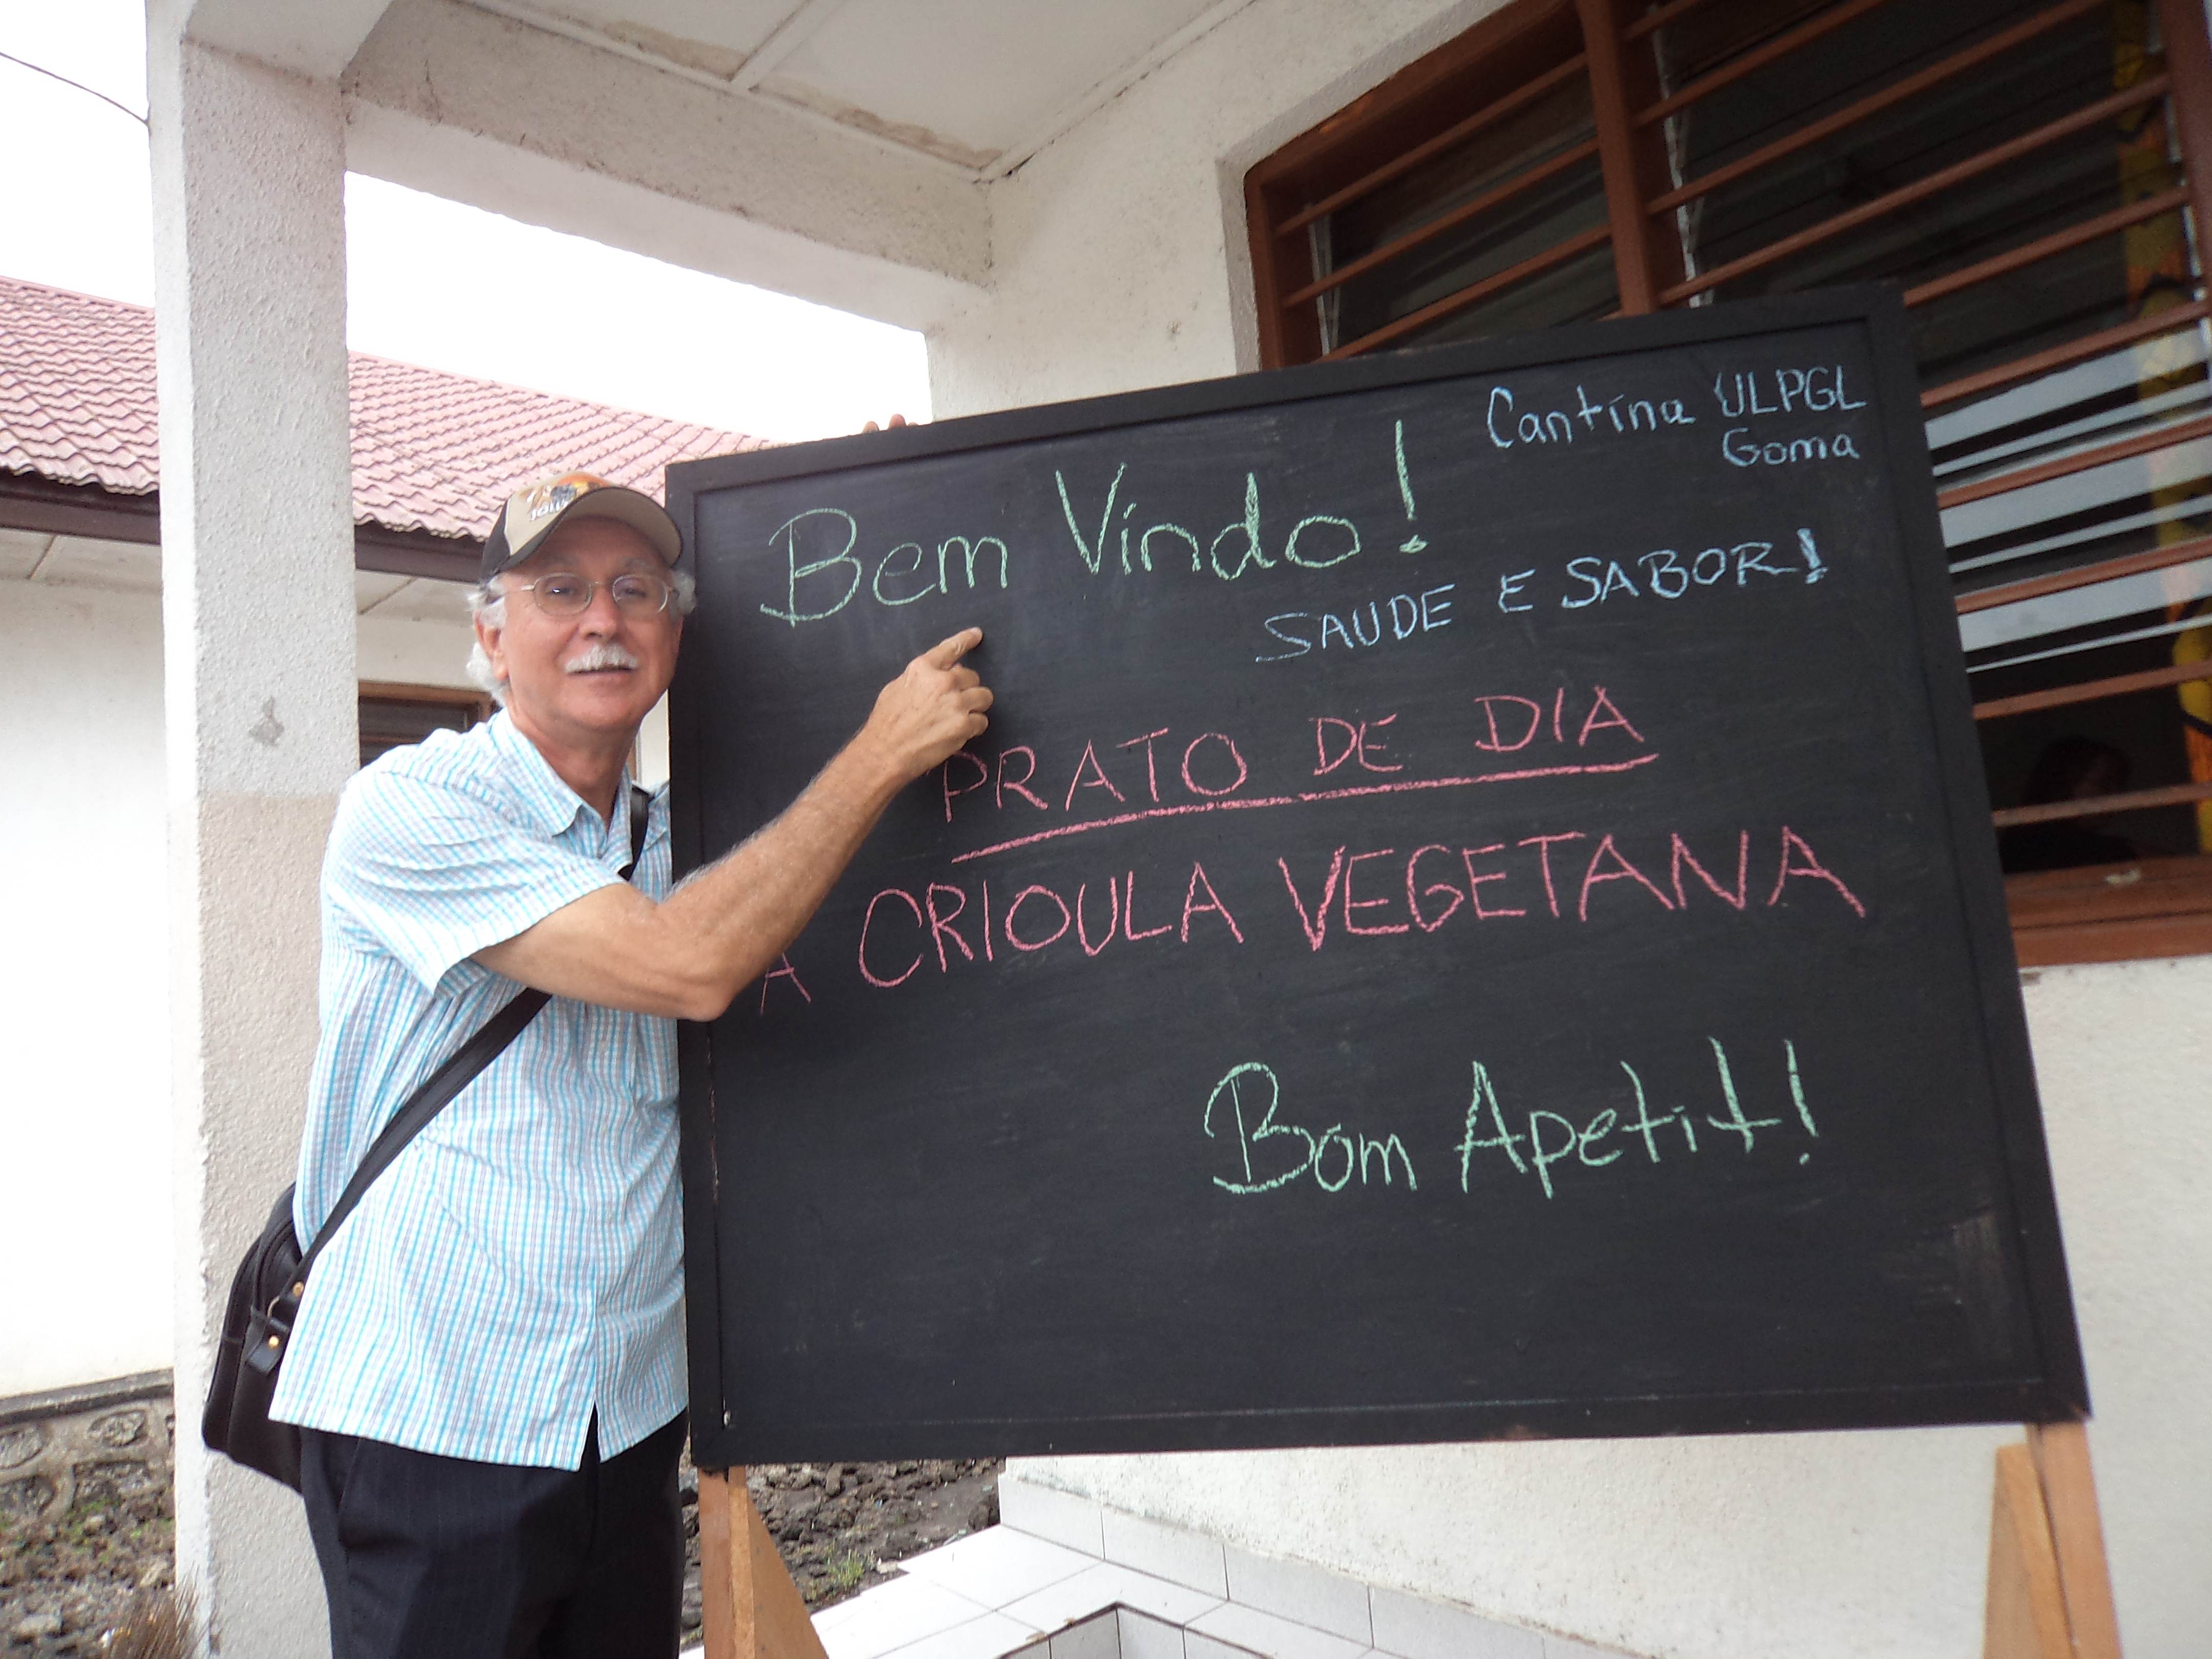 Cantina ULPGL
Goma
Bem Vindo!
SAUDE E SABOR!
PRATO DE DIA
A CRIOULA VEGETANA
Bom Apetit!